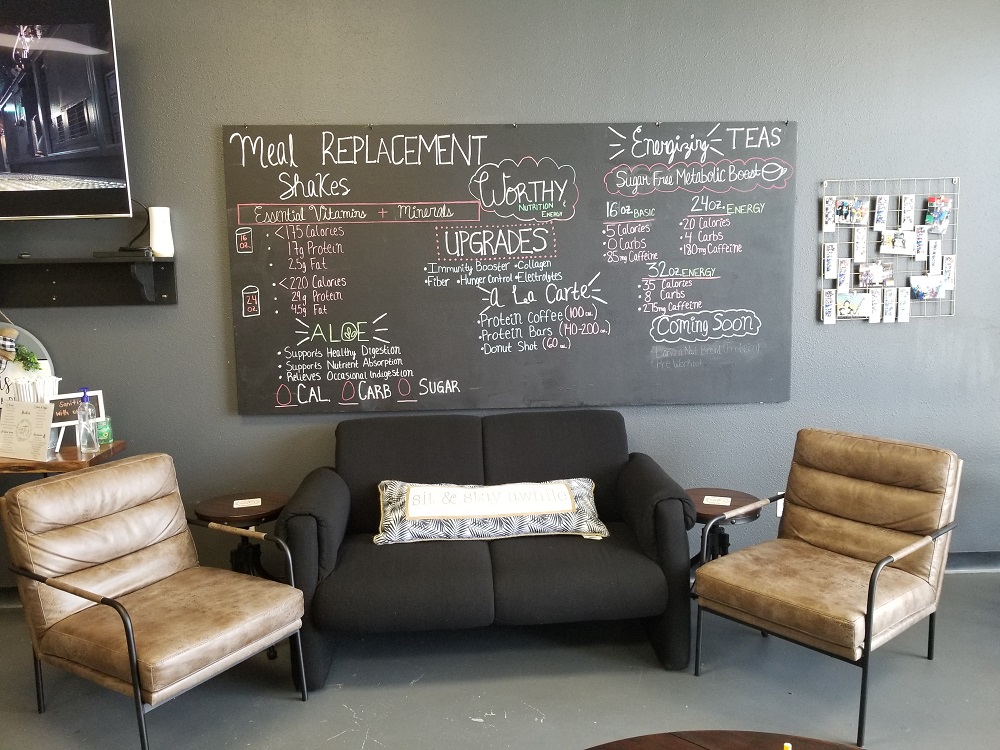 Meal REPLACEMENT
Shakes
Essential Vitamins + Minerals
16 OZ.
• <175 Calories
• 17g Protein
• 2.5g Fat
24 OZ
• <220 Calories
• 29g Protein
• 4.5g Fat
ALOE
• Supports Healthy Digestion
• Supports Nutrient Absorption
• Relieves Occasional Indigestion
0 CAL 0 CARB 0 SUGAR
WORTHY
NUTRITION
ENERGY
UPGRADES
• Immunity Booster • Collagen
• Fiber • Hunger Control • Electrolytes
A La Carte
• Protein Coffee (100 CAL)
• Protein Bars (140-200 CAL)
• Donut Shot (60 CAL)
Energizing TEAS
Sugar Free Metabolic Boost
16 oz BASIC
• 5 Calories
• 0 Carbs
• 85mg Caffeine
24oz. ENERGY
• 20 Calories
• 4 Carbs
• 180mg Caffeine
32oz ENERGY
• 35 Calories
• 8 Carbs
• 275mg Caffeine
Coming Soon
sit & stay awhile